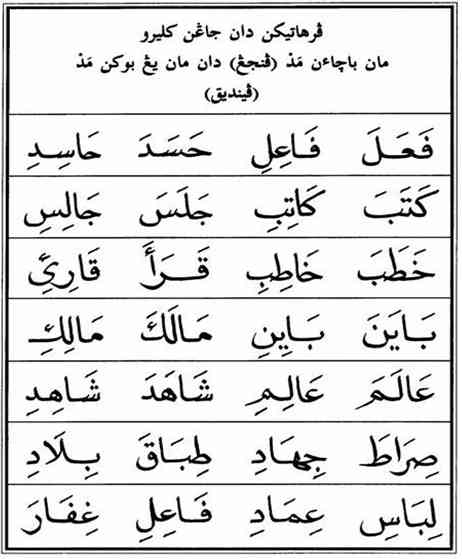 ڤرهاتيكن دان جاڠن كليرو
مان باچاءن مَدْ (ڤنجڠ) دان مان يڠ بوكن مَدْ
(ڤينديق)
فَعَلَ فَاعِلِ حَسَدَ حَاسِدِ
كَتَبَ كَاتِبِ جَلَسَ جَالِسِ
خَطَبَ خَاطِبِ قَرَأَ قَارِئِ
بَايَنَ بَايِنِ مَالَكَ مَالِكِ
عَالَمَ عَالِمِ شَاهَدَ شَاهِدِ
صِرَاطَ جِهَادِ طِبَاقَ بِلَادِ
لِبَاسِ عِمَادِ فَاعِلِ غِفَارَ